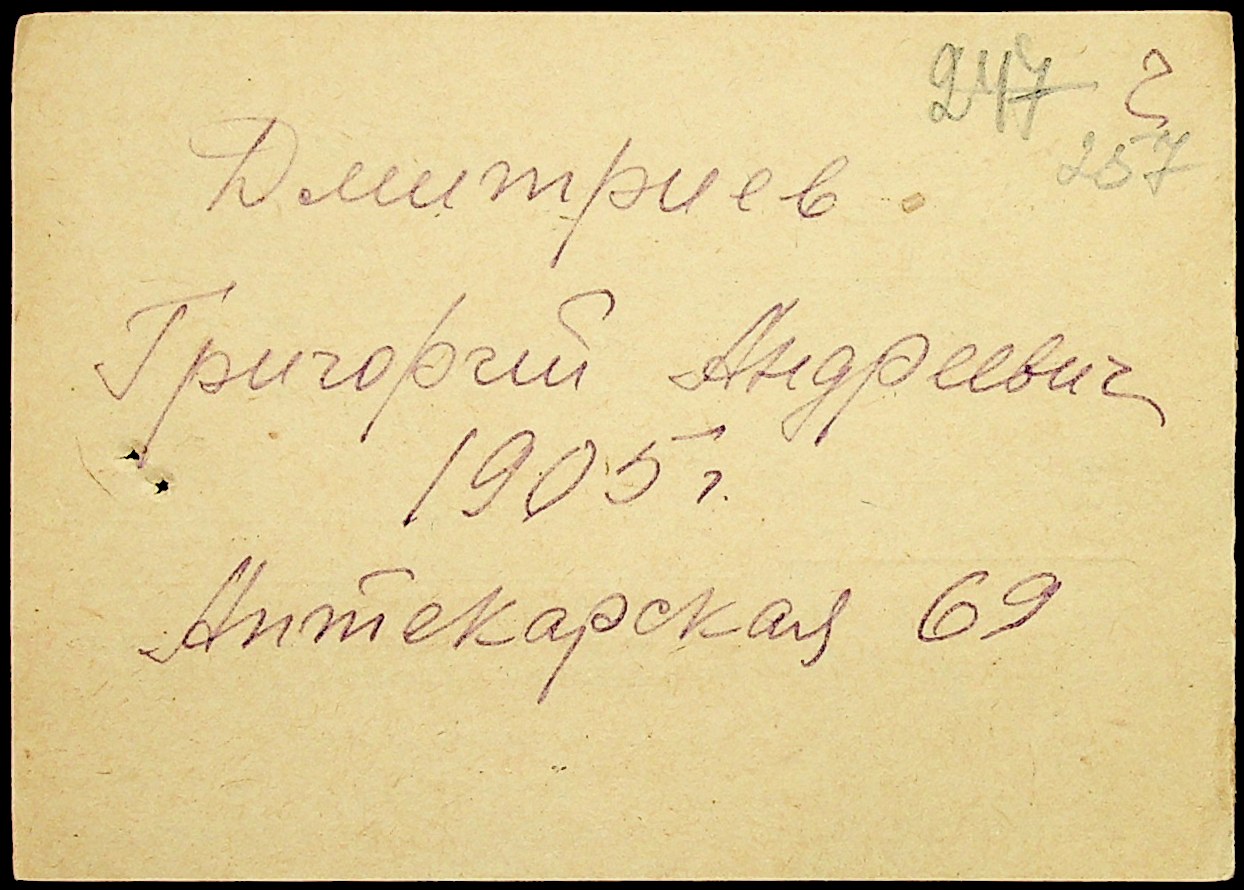 247
257
Дмитриев.
Григорий Андреевич
1905 г.
Аптекарская 69